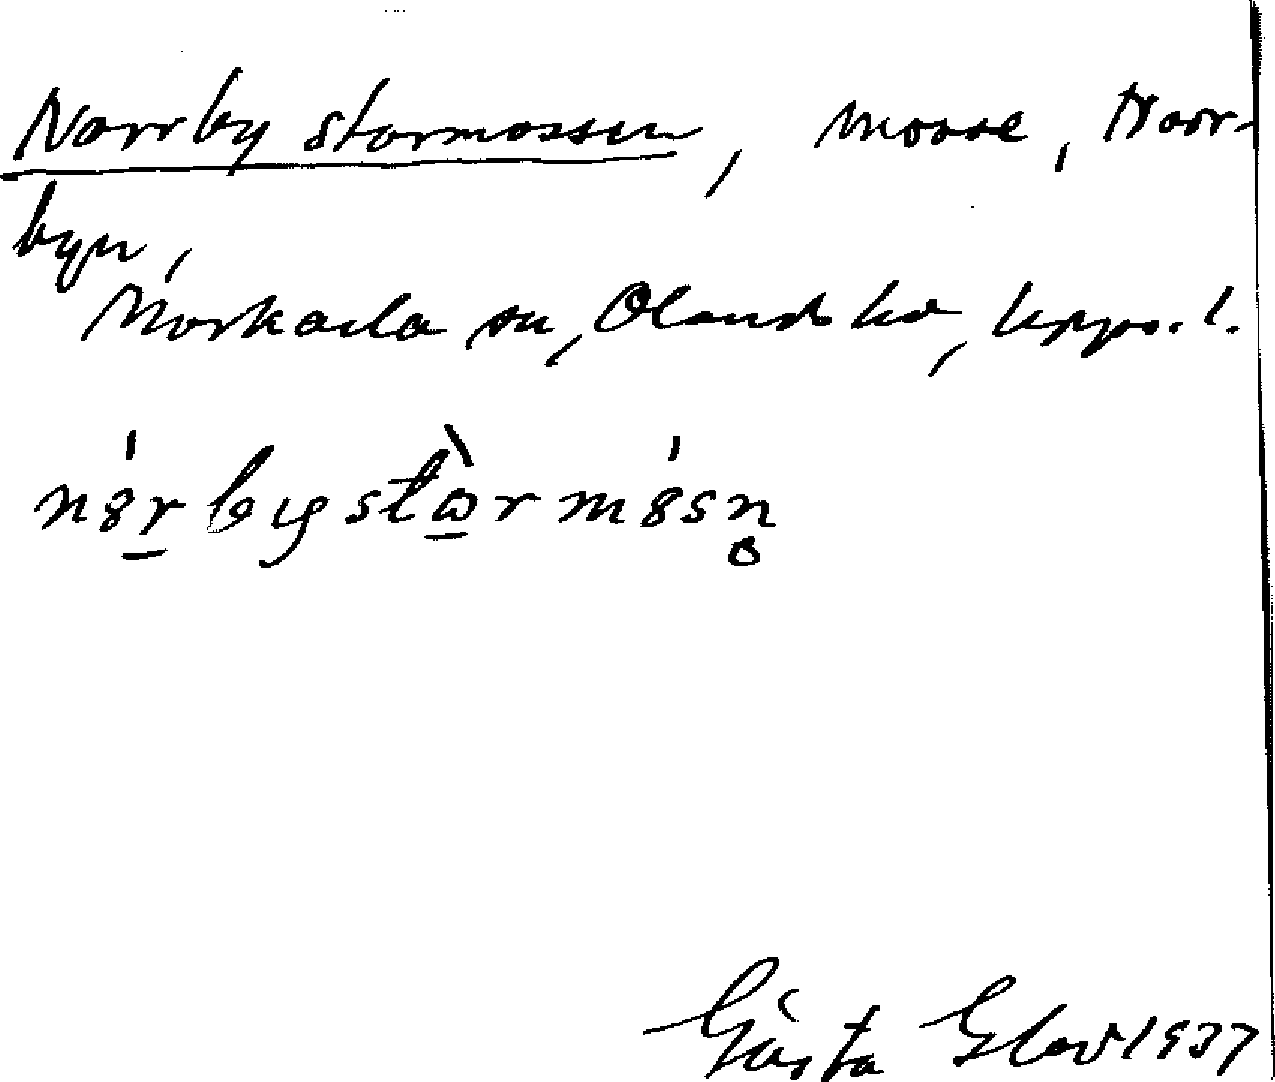 Norrby stormossen, mosse, Norr-
byn,
Morkarla sn, Olands hd, Upps. l.
nȯr̲bystɷ̲̀rmȯsn̥
Gösta 1937